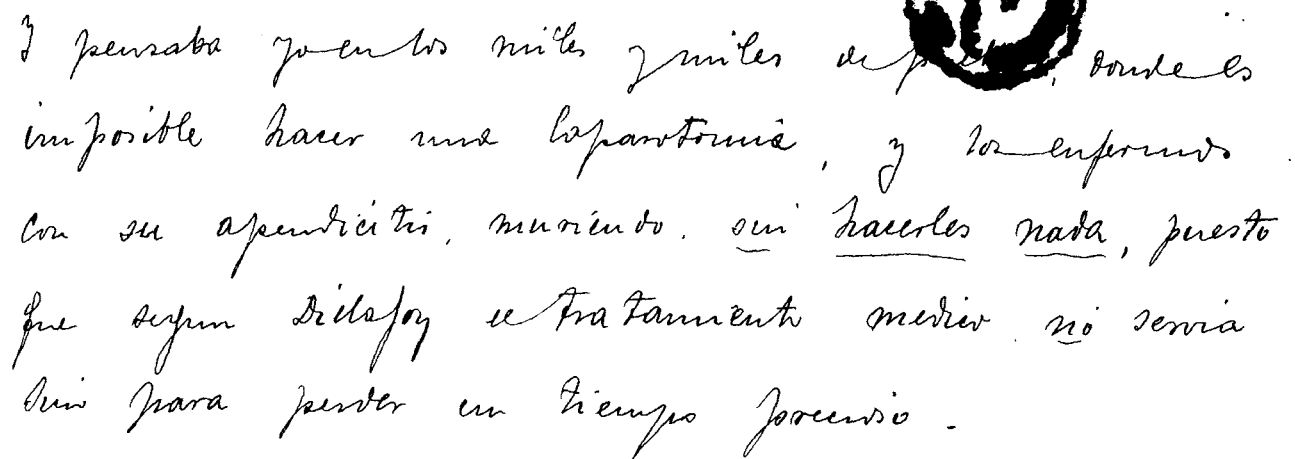 Y pensaba yo en los miles y miles de , donde es
imposible hacer una laparotomia, y los enfermos
con su apendicitis, muriendo. sin hacerles nada, puesto
que segun Dielafoy el tratamiento medico no servia
sino para perder un tiempo precioso.